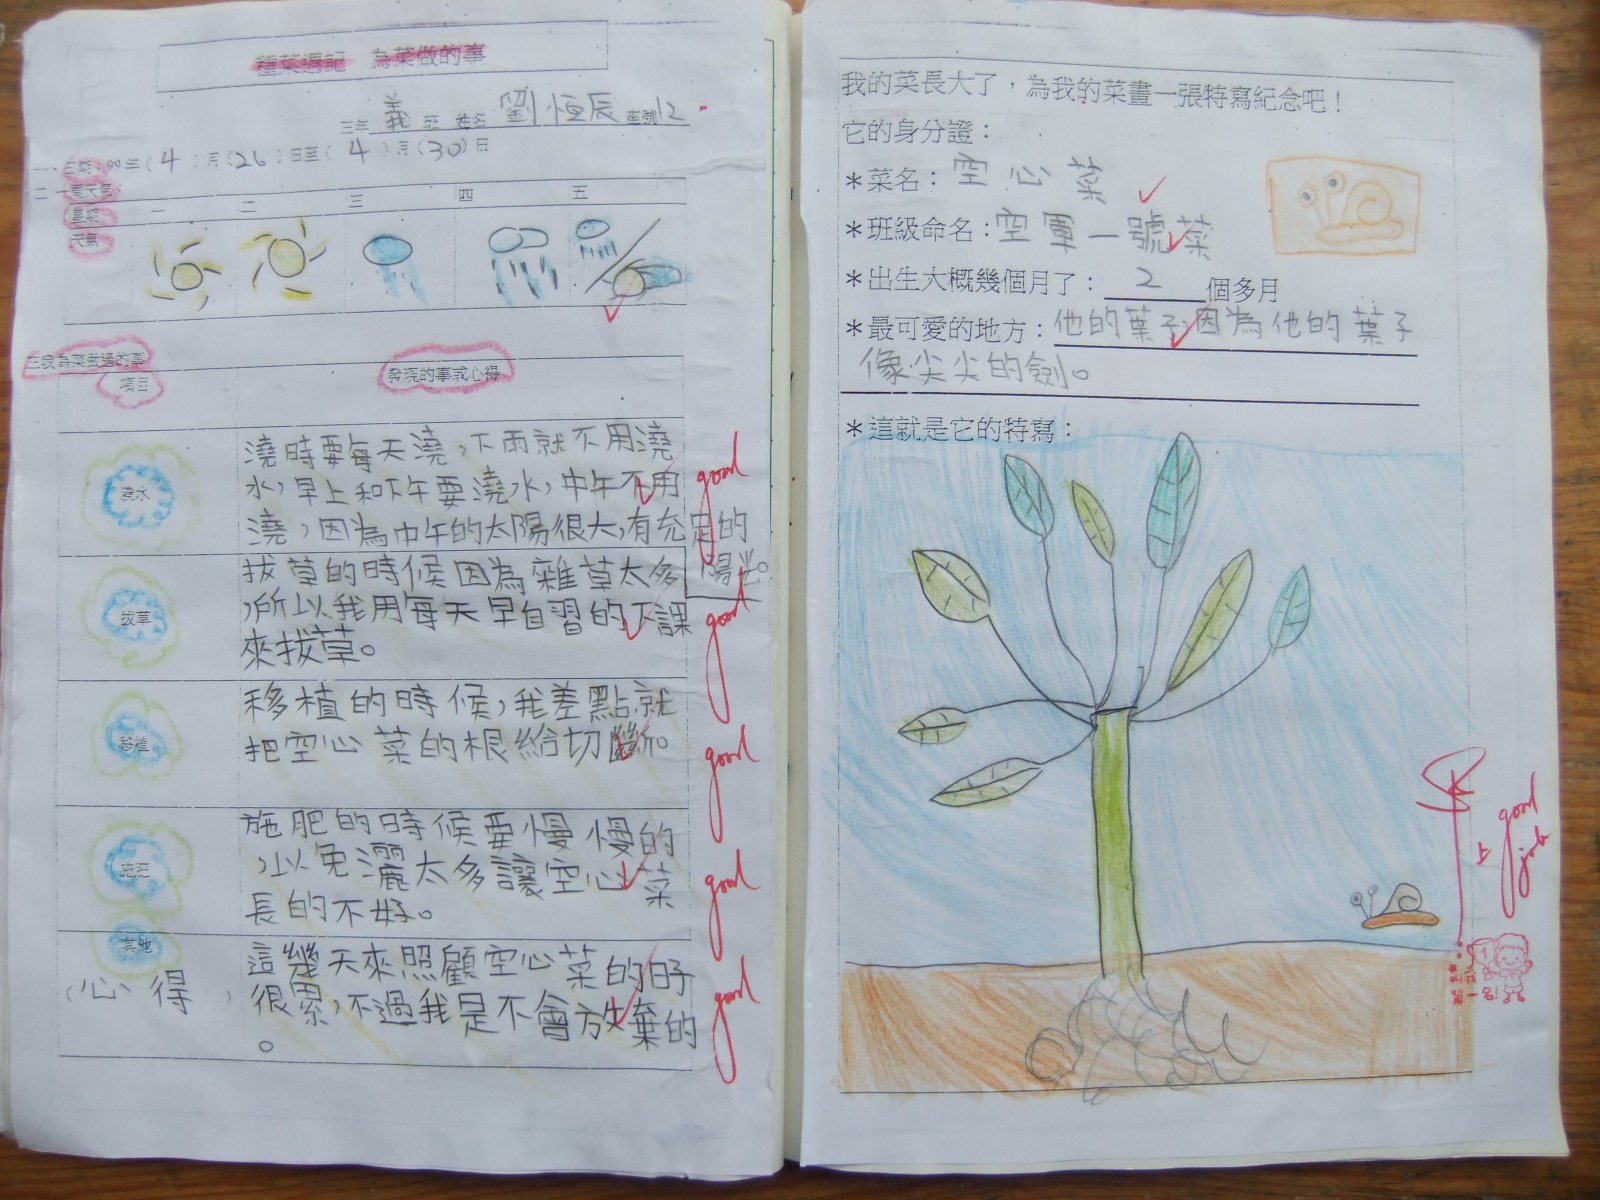 種菜週記 為菜做的事
三年 義 班 姓名 劉恒辰 座號12
一、日期：99年(4)月(26)日至(4)月(30)日
二 一週天氣
星期 一 二 三 四 五
天氣
三我為菜我過的事
項目 發現的事或心得
澆水
澆時要每天澆，下雨就不用澆
水，早上和下午要澆水，中午不用
澆，因為中午的太陽很大，有充足的
陽光。
good
拔草
拔草的時候因為雜草太多
，所以我用每天早自習的下課
來拔草。
good
移植
移植的時候，我差點就
把空心菜的根給切斷。
good
施肥
施肥的時候要慢慢的
，以免灑太多讓空心菜
長的不好。
good
其他
（心得）
這幾天來照顧空心菜的日子
很累，不過我是不會放棄的
。
good
我的菜長大了，為我的菜畫一張特寫紀念吧！
它的身分證：
＊菜名：空心菜
＊班級命名：空軍一號菜
＊出生大概幾個月了：2個多月
＊最可愛的地方：他的葉子因為他的葉子
像尖尖的劍。
＊這就是它的特寫：
上
good
job
第一名!